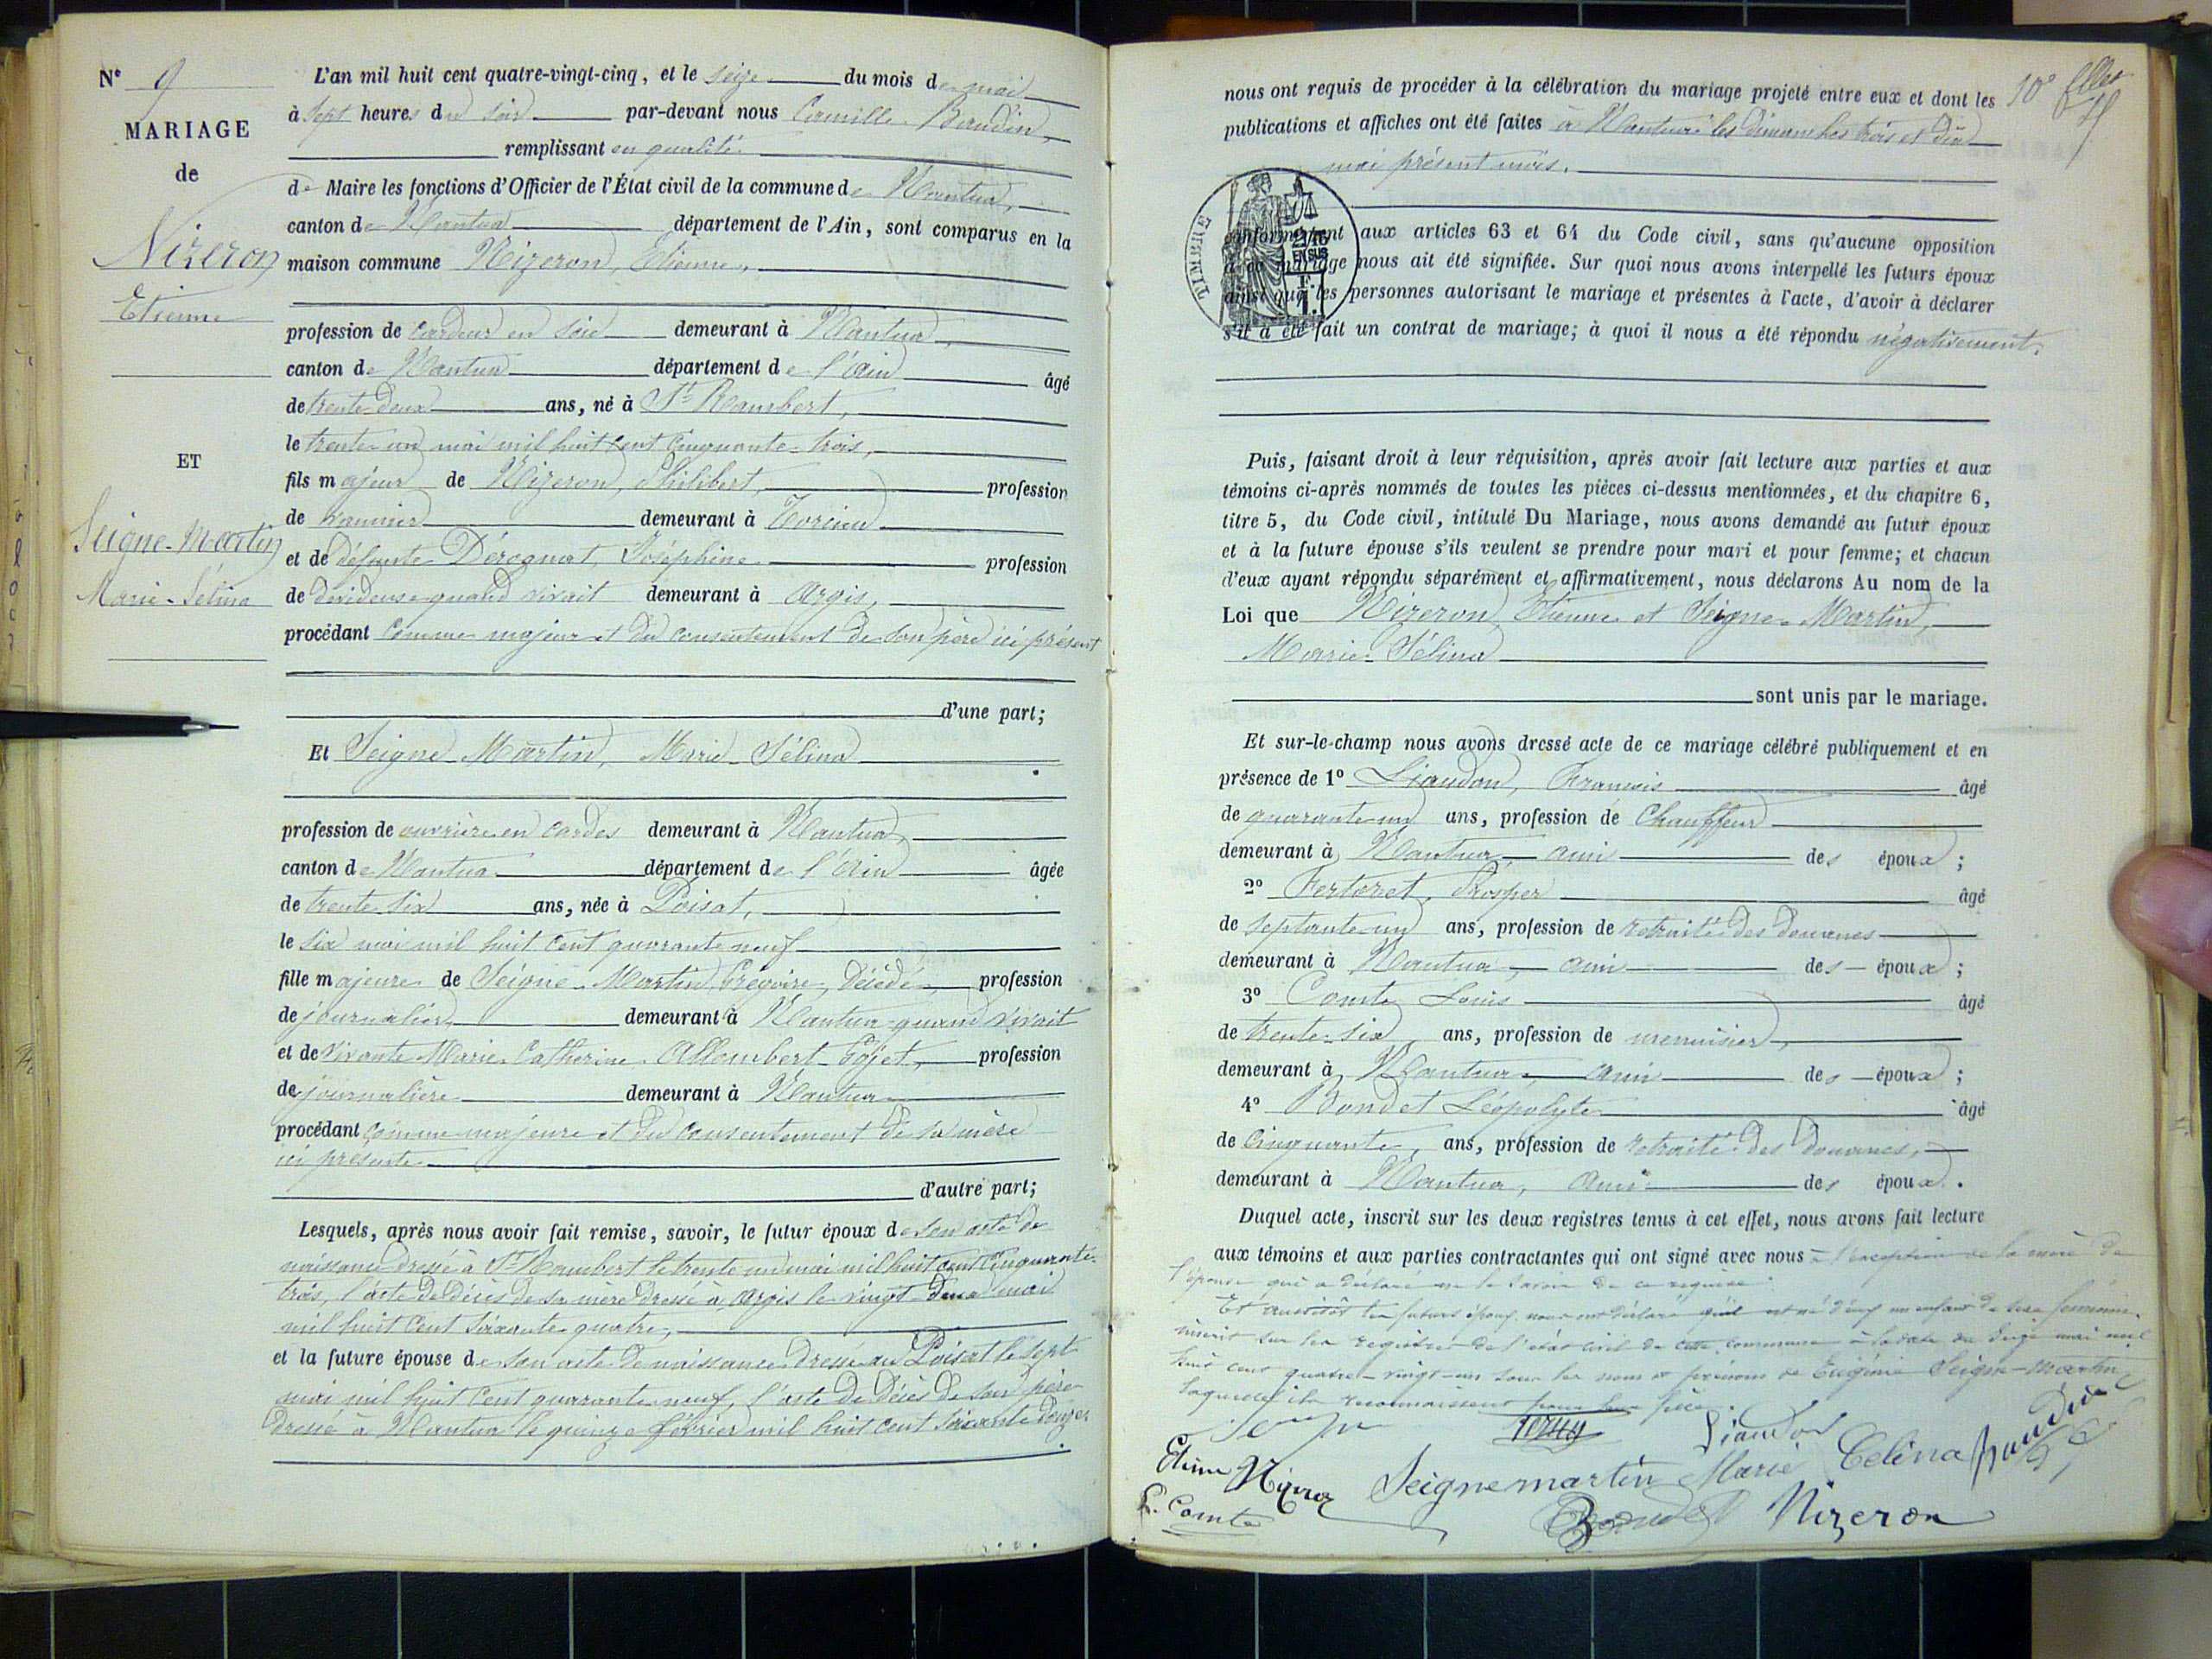 N° 9
MARIAGE
de
Nizeron
Etienne
ET
Seigne-Martin
Marie-Sélina
L'an mil huit cent quatre-vingt-cinq, et le seize du mois de mai
à sept heures du soir par-devant nous Camille Baudin,
remplissant en qualité
de Maire les fonctions d'Officier de l'État civil de la commune de Nantua,
canton de Nantua département de l'Ain, sont comparus en la
maison commune Nizeron, Etienne,
profession de cardeur en soie demeurant à Nantua,
canton de Nantua département de l'Ain âgé
de trente-deux ans, né à St Rambert,
le trente-un mai mil huit cent cinquante-trois,
fils majeur de Nizeron, Philibert, profession
de demeurant à Torcieu
et de défunte Dérognat, Joséphine profession
de dévideuse quand vivait demeurant à Argis,
procédant comme majeur et du consentement de son père ici présent
d'une part;
Et Seigne-Martin, Marie-Sélina
profession de ouvrière en cardes demeurant à Nantua,
canton de Nantua département de l'Ain âgée
de trente-six ans, née à Poisat,
le six mai mil huit cent quarante-neuf
fille majeure de Seigne-Martin, Grégoire, décédé, profession
de journalier, demeurant à Nantua quand vivait
et de vivante Marie-Catherine Allombert-Goget, profession
de journalière demeurant à Nantua
procédant comme majeure et du consentement de sa mère
ici présente
d'autre part;
Lesquels, après nous avoir fait remise, savoir, le futur époux de son acte de
naissance dressé à St Rambert le trente un mai mil huit cent cinquante-
trois, l'acte de décès de sa mère dressé à Argis le vingt-deux mai
mil huit cent soixante-quatre,
et la future épouse de son acte de naissance dressé au Poisat le sept
mai mil huit cent quarante-neuf, l'acte de décès de son père
dressé à Nantua le quinze février mil huit cent soixante-douze
10e
nous ont requis de procéder à la célébration du mariage projeté entre eux et dont les
publications et affiches ont été faites à Nantua les dimanches trois et dix
mai présent mois.
TIMBRE
conformément aux articles 63 et 64 du Code civil, sans qu'aucune opposition
à ce mariage nous ait été signifiée. Sur quoi nous avons interpellé les futurs époux
ainsi que les personnes autorisant le mariage et présentes à l'acte, d'avoir à déclarer
s'il a été fait un contrat de mariage; à quoi il nous a été répondu négativement.
Puis, faisant droit à leur réquisition, après avoir fait lecture aux parties et aux
témoins ci-après nommés de toutes les pièces ci-dessus mentionnées, et du chapitre 6,
titre 5, du Code civil, intitulé Du Mariage, nous avons demandé au futur époux
et à la future épouse s'ils veulent se prendre pour mari et pour femme; et chacun
d'eux ayant répondu séparément et affirmativement, nous déclarons Au nom de la
Loi que Nizeron, Etienne et Seigne-Martin,
Marie-Sélina
sont unis par le mariage.
Et sur-le-champ nous avons dressé acte de ce mariage célébré publiquement et en
présence de 1° Liaudon, François âgé
de quarante-un ans, profession de Chauffeur
demeurant à Nantua, ami des époux;
2° Fertoret, Prosper âgé
de septante-un ans, profession de retraité des douanes
demeurant à Nantua, ami des époux;
3° Comte Louis âgé
de trente-six ans, profession de menuisier,
demeurant à Nantua, ami des époux;
4° Bondet Léopolyte âgé
de cinquante, ans, profession de retraité des douanes,
demeurant à Nantua, ami des époux.
Duquel acte, inscrit sur les deux registres tenus à cet effet, nous avons fait lecture
aux témoins et aux parties contractantes qui ont signé avec nous à l'exception de la mère de
l'épouse qui a déclaré ne le savoir de ce requise.
Et aussitôt les futurs époux nous ont déclaré qu'il est né d'eux un enfant de sexe féminin
inscrit sur les registres de l'état civil de cette commune à la date du seize mai mil
huit cent quatre-vingt-un sous les noms et prénoms de Eugénie Seigne-Martin
laquelle ils reconnaissent pour leur fille.
Liaudon
Etienne Nizeron Seignemartin Marie Celina Baudin
L. Comte Bondet Nizeron